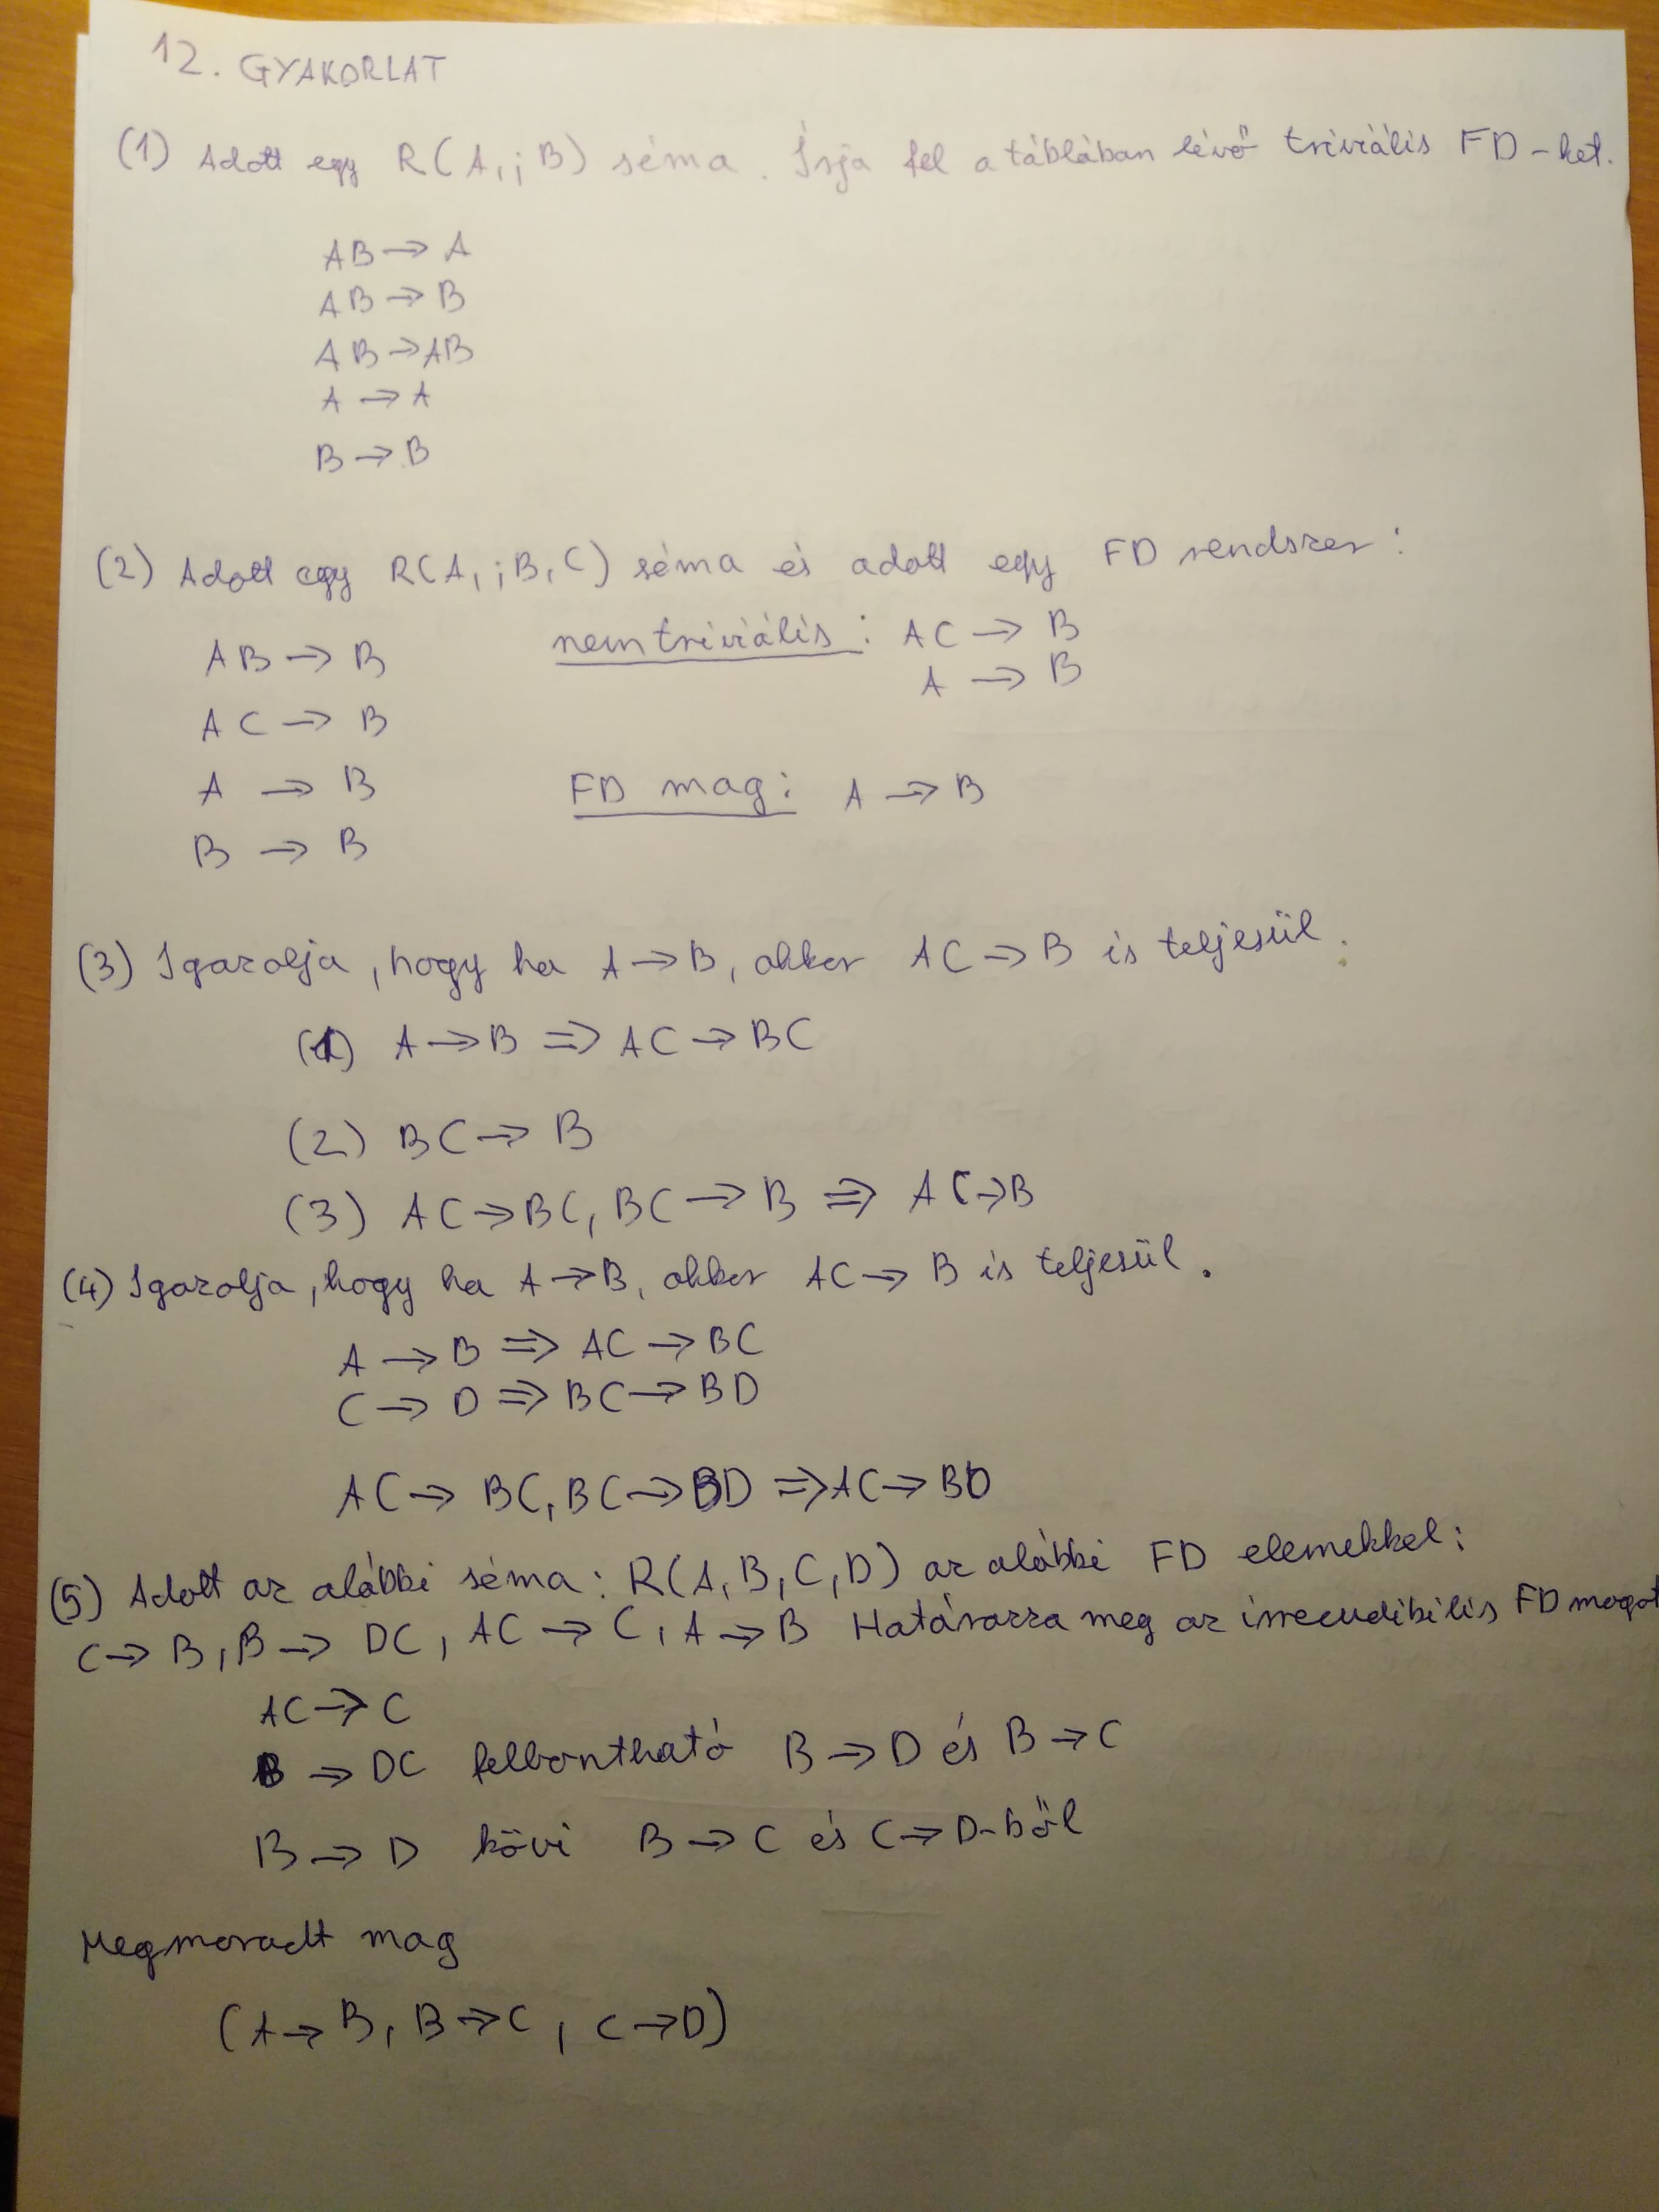 12. GYAKORLAT
(1) Adott egy R(A,;B) séma. Írja fel a táblában lévő triviális FD-ket.
AB → A
AB → B
AB → AB
A → A
B → B
(2) Adott egy R(A,;B,C) séma és adott egy FD rendszer:
AB → B
AC → B
A → B
B → B
nem triviális: AC → B
A → B
FD mag: A → B
(3) Igazolja, hogy ha A → B, akkor AC → B is teljesül.
(1) A → B ⇒ AC → BC
(2) BC → B
(3) AC → BC, BC → B ⇒ AC → B
(4) Igazolja, hogy ha A → B, akkor AC → B is teljesül.
A → B ⇒ AC → BC
C → D ⇒ BC → BD
AC → BC, BC → BD ⇒ AC → BD
(5) Adott az alábbi séma: R(A,B,C,D) az alábbi FD elemekkel:
C → B, B → DC, AC → C, A → B Határozza meg az FD magot
AC → C
B → DC felbontható B → D és B → C
B → D kövi B → C és C → D-ből
Megmaradt mag
(A → B, B → C, C → D)